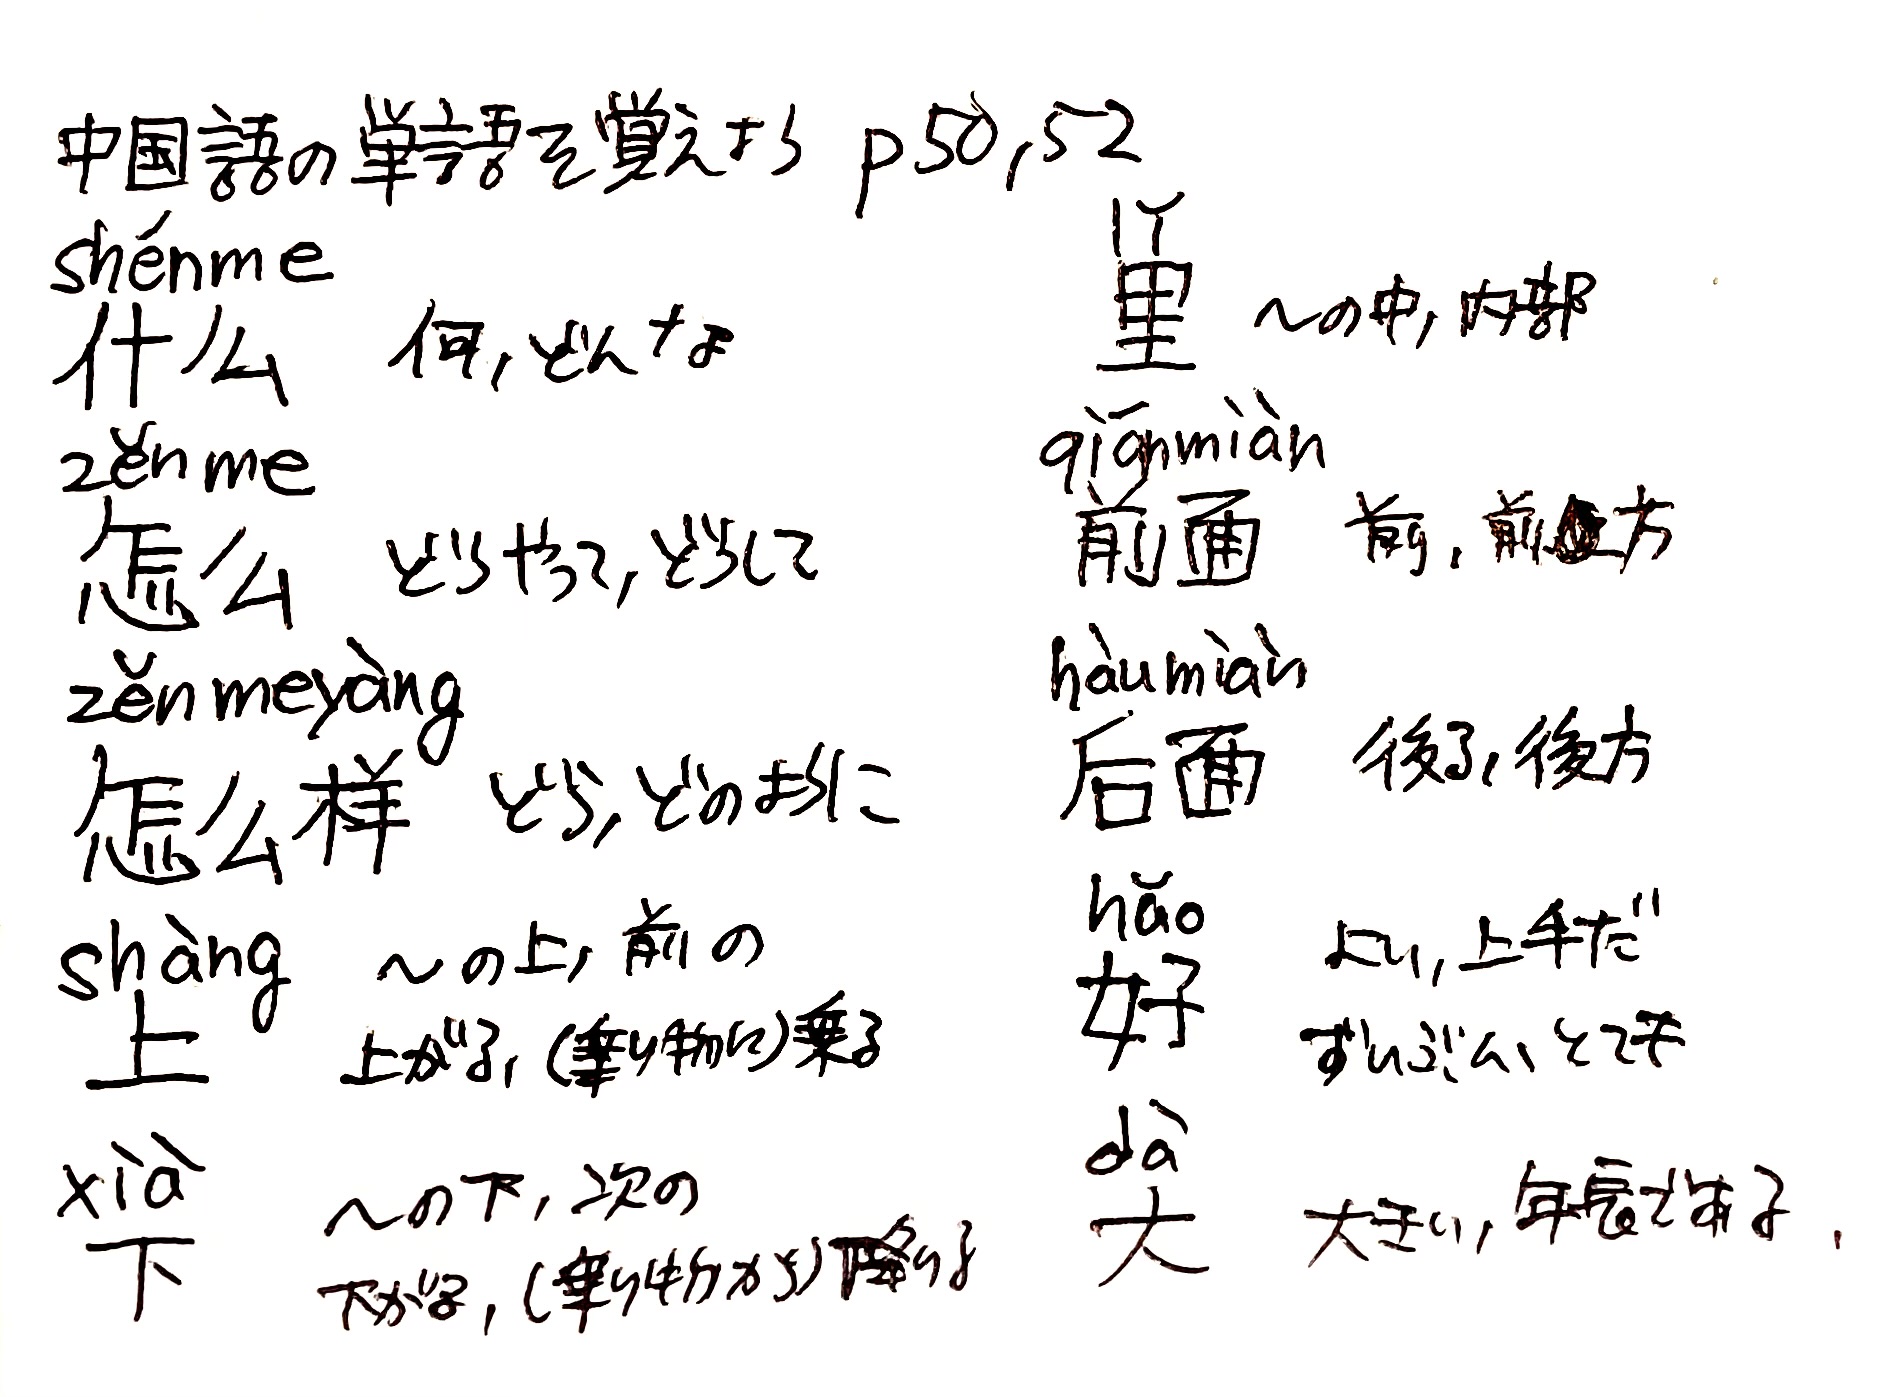 中国語の単語を覚えよう p50,52
shénme
什么 何,どんな
zěnme
怎么 どうやって,どうして
zěnmeyàng
怎么样 どう,どのように
shàng
上 〜の上,前の
上がる,(乗り物に)乗る
xià
下 〜の下,次の
下がる,(乗り物から)降りる
lǐ
里 〜の中,内部
qiānmiàn
前面 前,前方
hàumiàn
后面 後ろ,後方
hǎo
好 よい,上手だ
ずいぶん、とても
dà
大 大きい,年長である.